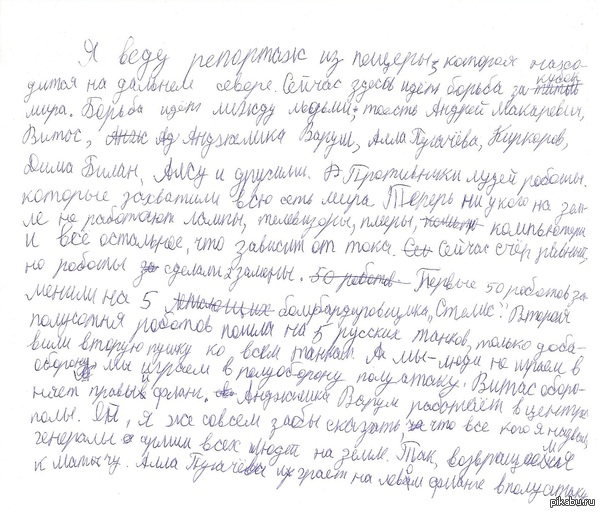 Я веду репортаж из пещеры, которая нахо-
дится на дальнем севере. Сейчас здесь идёт борьба за кубок
мира. Борьба идёт между людьми, тоесть Андрей Макаревич,
Витас, Анджелика Варум, Алла Пугачёва, Киркоров,
Дима Билан, Алсу и другими. Противники людей роботы.
которые захватили всю сеть мира Теперь ни у кого на зем-
ле не работают лампы, телевизоры, плееры, компьютеры
и всё остальное, что зависит от тока. Сейчас счёт равный,
но роботы сделали 2 замены. 50 роботов Первые 50 роботов за-
менили на 5 бомбардировщика „Стелис". Вторая
полусотня роботов пошла на 5 русских танков, только доба-
вили вторую пушку ко всем танкам. А мы-люди не играем в
оборону мы играем в полуоборону полуатаку. Витас оборо-
няет правый фланг. Анджелика Варум работает в центре
полы. Ой, я же совсем забы сказать, что все кого я назвал,
генералы армии всех людей на земле. Так, возвращаемся
к матычу. Алла Пугачёва играет на левом фланге в полуатаке
pikabu.ru